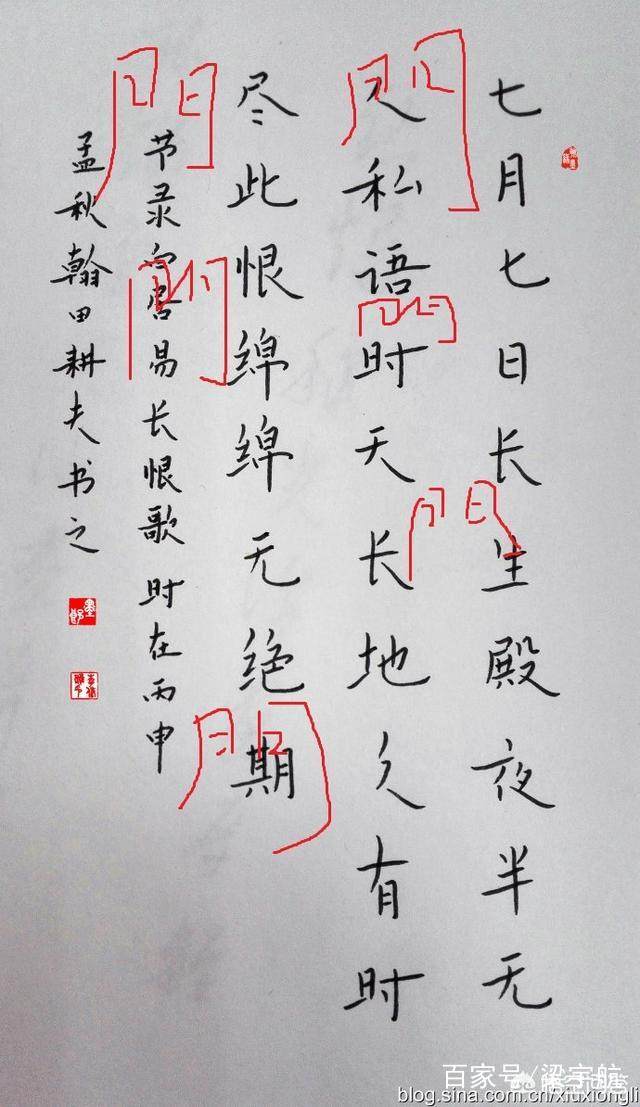 七月七日长生殿夜半无
人私语时天长地久有时
尽此恨绵绵无绝期
节录白居易长恨歌时在丙申
孟秋翰田耕夫书之
門
門
門
門
門
門
百家号/梁宇航
blog.sina.com.cn/xiuxiongli